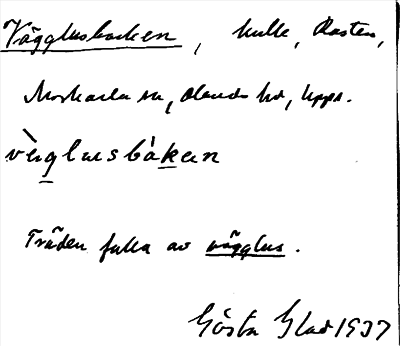 Vägglusbacken, kulle, Rasten,
Morkarla sn, Olands hd, Upps.
vèglusbàken
Träden fulla av vägglus.
Gösta Glad 1937